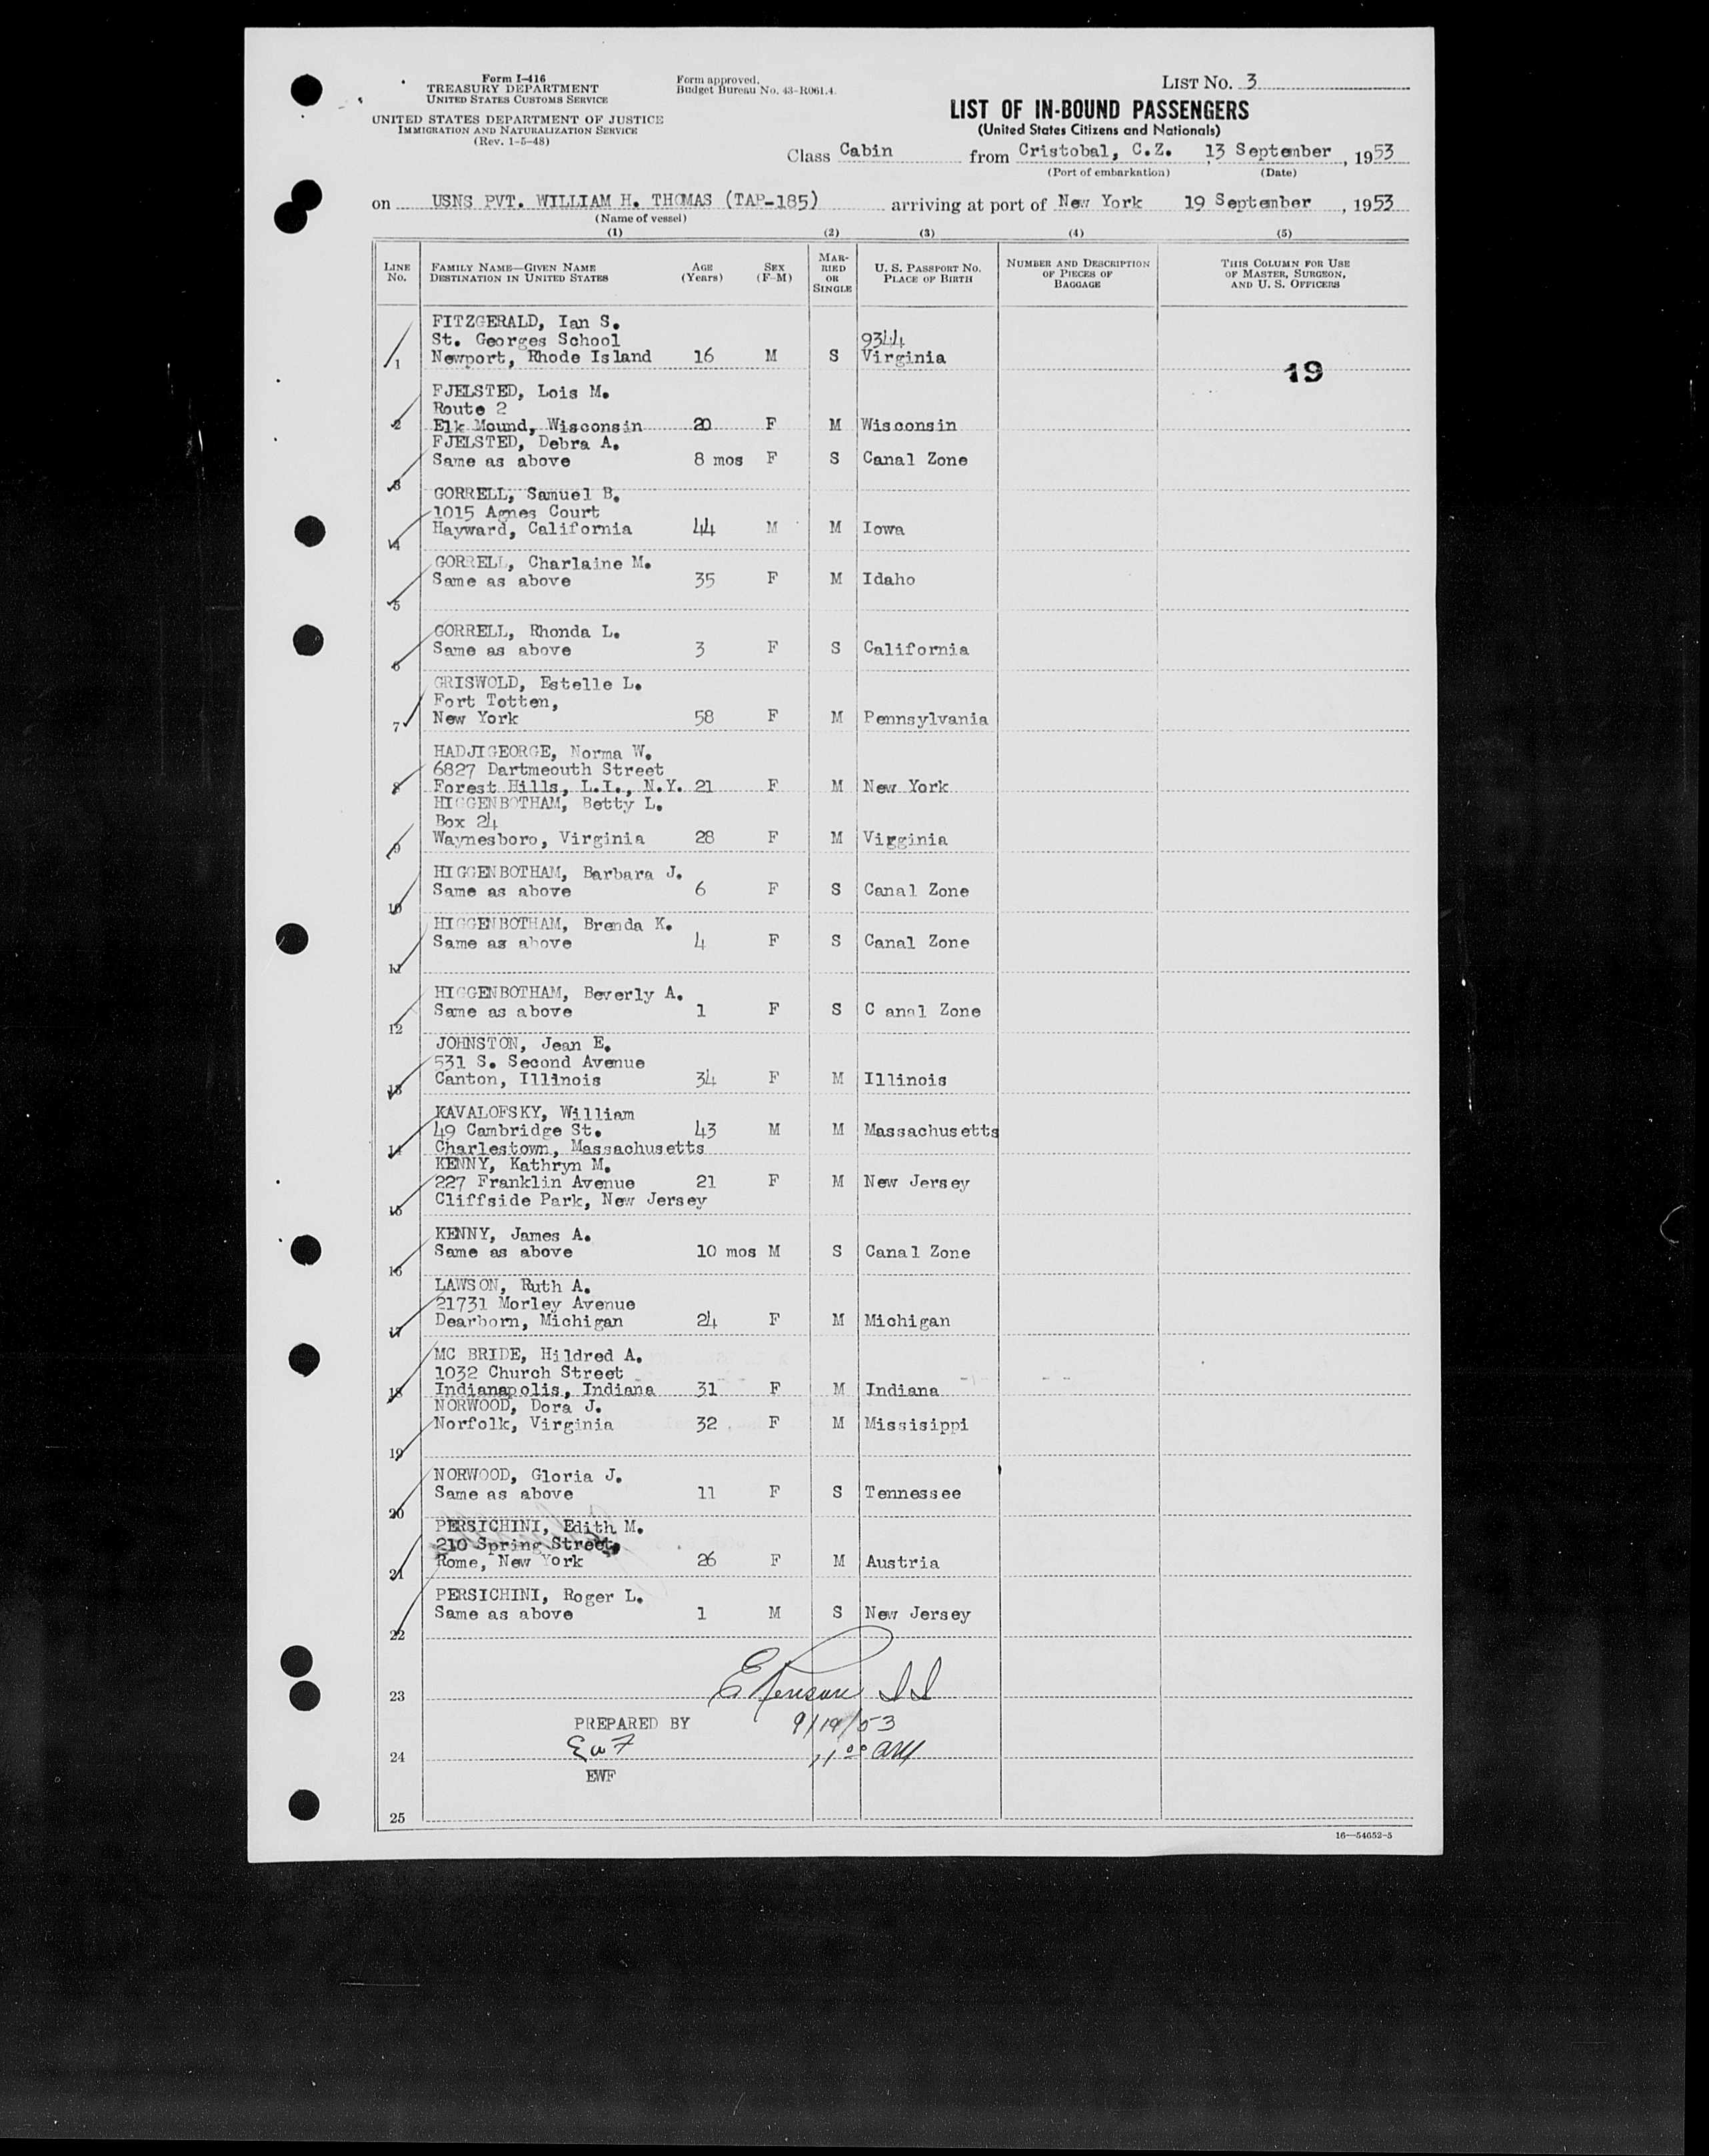 Form I-416
TREASURY DEPARTMENT
UNITED STATES CUSTOMS SERVICE
UNITED STATES DEPARTMENT OF JUSTICE
IMMIGRATION AND NATURALIZATION SERVICE
(Rev. 1-5-48)
Form approved.
Budget Bureau No. 43-R061.4.
LIST NO. 3
LIST OF IN-BOUND PASSENGERS
(United States Citizens and Nationals)
Class Cabin from Cristobal, C.Z. 13 September, 1953
(Port of embarkation) (Date)
on USNS PVT. WILLIAM H. THOMAS (TAP-185) arriving at port of New York 19 September, 1953
(Name of vessel)
(1) (2) (3) (4) (5)
LINE NO. FAMILY NAME—GIVEN NAME DESTINATION IN UNITED STATES AGE (Years) SEX (F-M) MARRIED OR SINGLE U. S. PASSPORT NO. PLACE OF BIRTH NUMBER AND DESCRIPTION OF PIECES OF BAGGAGE THIS COLUMN FOR USE OF MASTER, SURGEON, AND U. S. OFFICERS
FITZGERALD, Ian S.
St. Georges School 9344
1 Newport, Rhode Island 16 M S Virginia
19
FJELSTED, Lois M.
Route 2
2 Elk Mound, Wisconsin 20 F M Wisconsin
FJELSTED, Debra A.
Same as above 8 mos F S Canal Zone
3
GORRELL, Samuel B.
1015 Agnes Court
4 Hayward, California 44 M M Iowa
GORRELL, Charlaine M.
Same as above 35 F M Idaho
5
GORRELL, Rhonda L.
6 Same as above 3 F S California
GRISWOLD, Estelle L.
Fort Totten,
7 New York 58 F M Pennsylvania
HADJIGEORGE, Norma W.
6827 Dartmeouth Street
8 Forest Hills, L.I., N.Y. 21 F M New York
HIGGENBOTHAM, Betty L.
Box 24
9 Waynesboro, Virginia 28 F M Virginia
HIGGENBOTHAM, Barbara J.
10 Same as above 6 F S Canal Zone
HIGGENBOTHAM, Brenda K.
Same as above 4 F S Canal Zone
11
HIGGENBOTHAM, Beverly A.
12 Same as above 1 F S C anal Zone
JOHNSTON, Jean E.
531 S. Second Avenue
13 Canton, Illinois 34 F M Illinois
KAVALOFSKY, William
49 Cambridge St. 43 M M Massachusetts
14 Charlestown, Massachusetts
KENNY, Kathryn M.
227 Franklin Avenue 21 F M New Jersey
15 Cliffside Park, New Jersey
KENNY, James A.
16 Same as above 10 mos M S Canal Zone
LAWSON, Ruth A.
21731 Morley Avenue
17 Dearborn, Michigan 24 F M Michigan
MC BRIDE, Hildred A.
1032 Church Street
18 Indianapolis, Indiana 31 F M Indiana
NORWOOD, Dora J.
Norfolk, Virginia 32 F M Missisippi
19
NORWOOD, Gloria J.
20 Same as above 11 F S Tennessee
PERSICHINI, Edith M.
210 Spring Street,
21 Rome, New York 26 F M Austria
PERSICHINI, Roger L.
22 Same as above 1 M S New Jersey
23
PREPARED BY 9/19/53
24 EWF 11 00 AM
EWF
25
16—54652-5